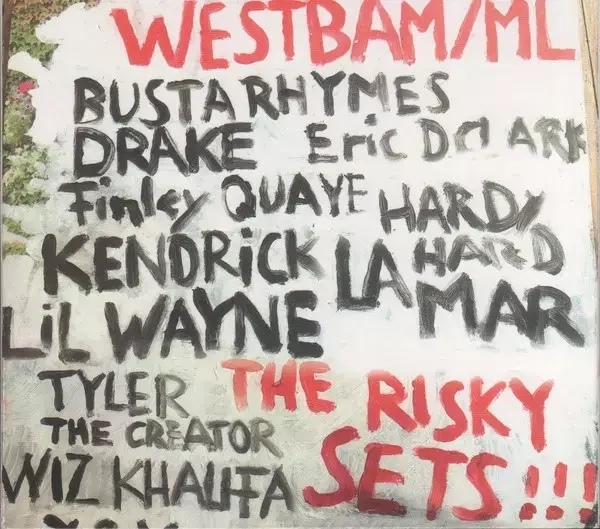 WESTBAM/ML
BUSTA RHYMES
DRAKE Eric D ClARK
Finley QUAYE HARDY
HARD
KENDRiCK LA
MAR
LiL WAYNE
TYLER
THE CREATOR
WIZ KHALIFA
THE RISKY
SETS!!!